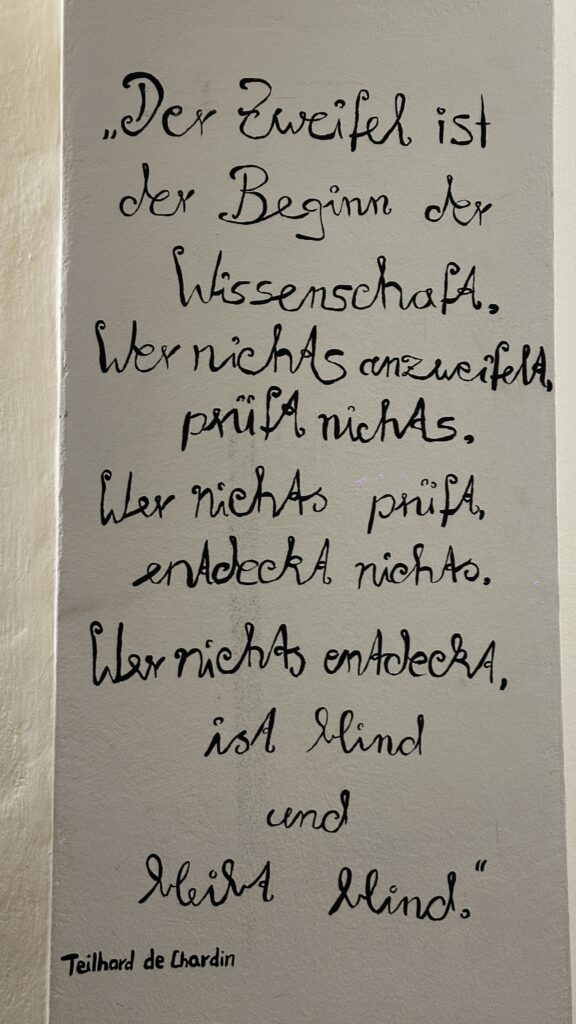 „Der Zweifel ist
der Beginn der
Wissenschaft.
Wer nichts anzweifelt,
prüft nichts.
Wer nichts prüft,
entdeckt nichts.
Wer nichts entdeckt,
ist blind
und
bleibt blind.“
Teilhard de Chardin